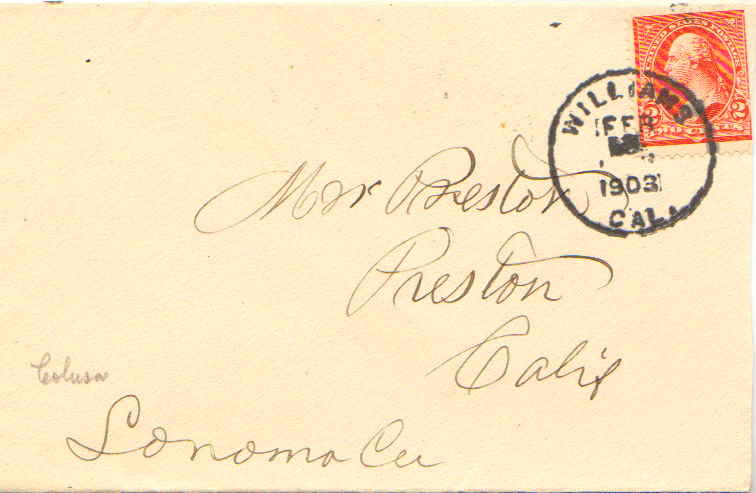 UNITED STATES POSTAGE
2 2
TWO CENTS
WILLIAMS
FEB
1903
CAL.
Mr Preston
Preston
Calif
Colusa
Sonoma Co